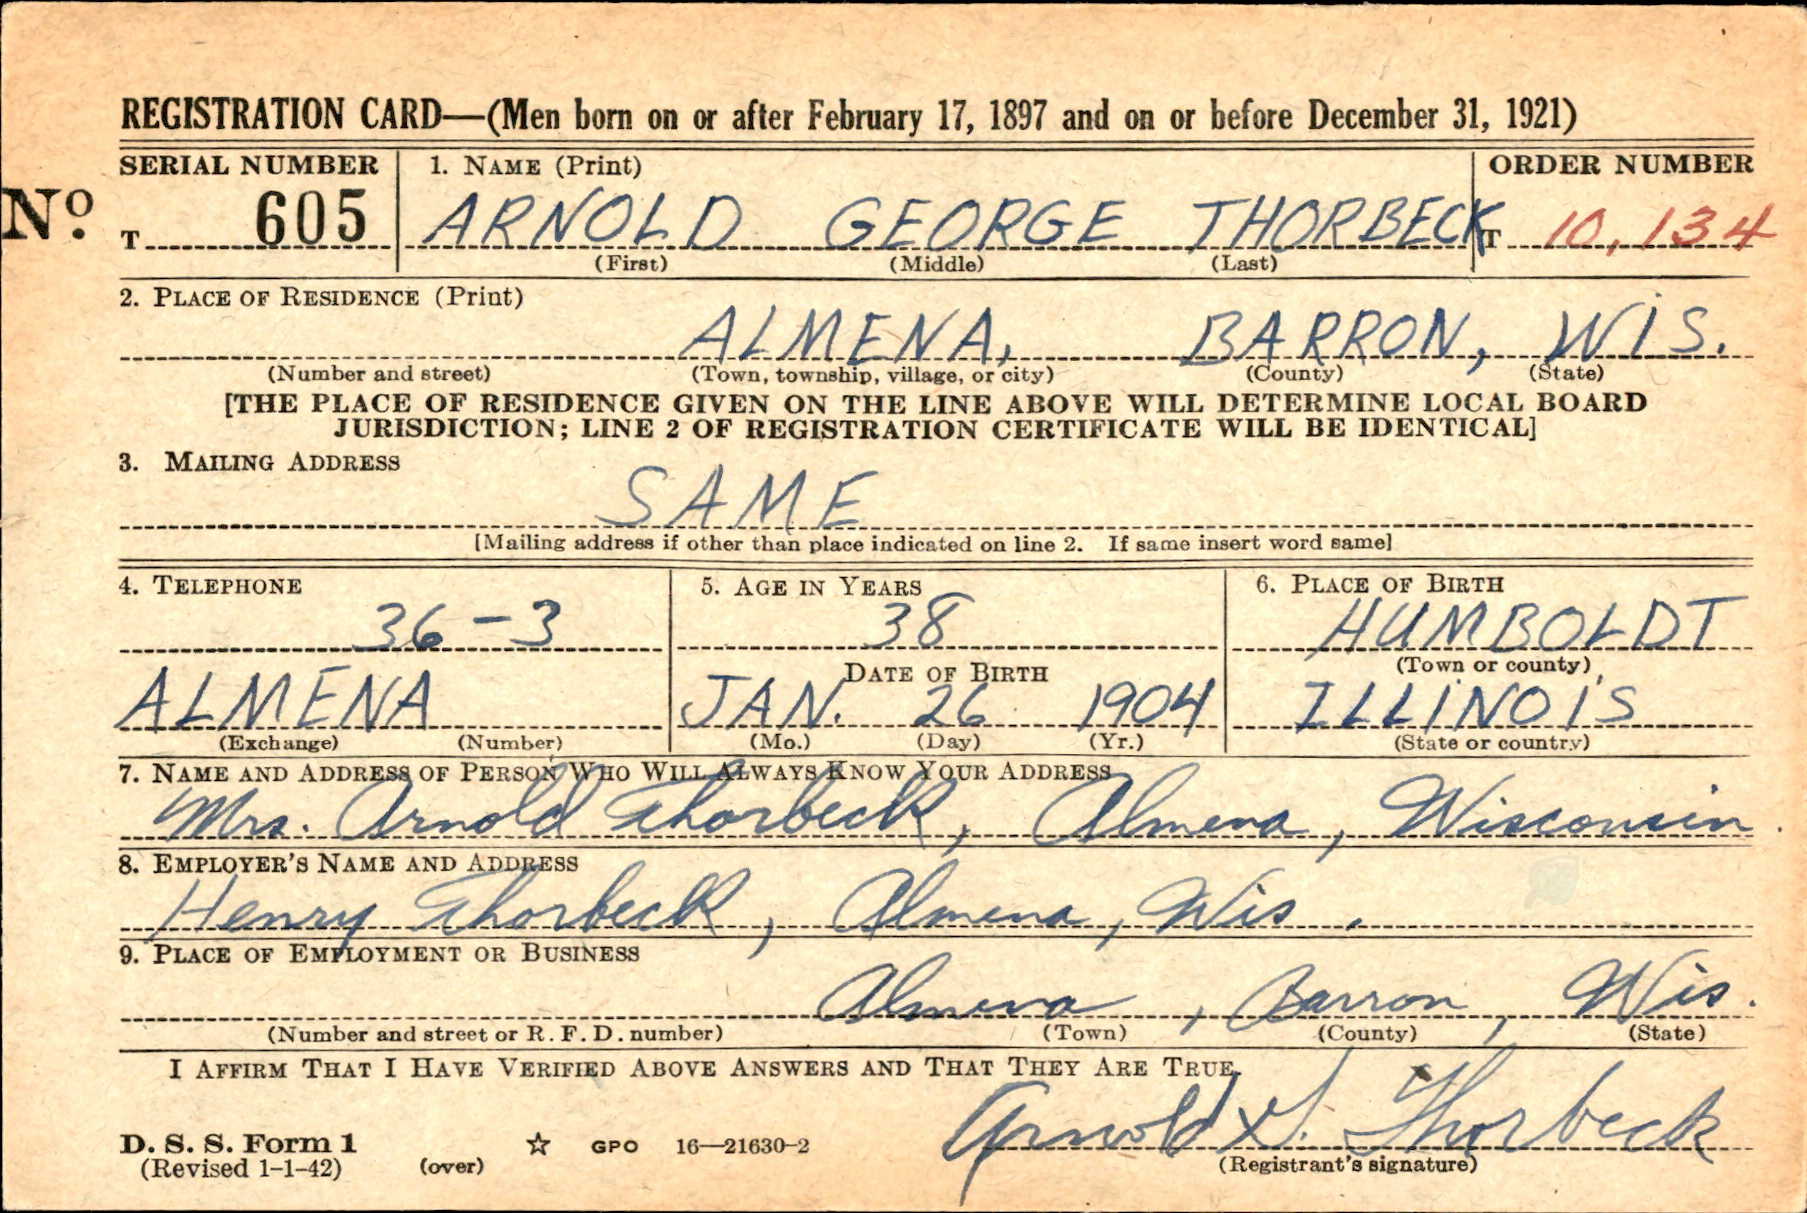 REGISTRATION CARD—(Men born on or after February 17, 1897 and on or before December 31, 1921)
SERIAL NUMBER 1. NAME (Print) ORDER NUMBER
No. T 605 ARNOLD GEORGE THORBECK T 10,134
(First) (Middle) (Last)
2. PLACE OF RESIDENCE (Print)
ALMENA, BARRON, WIS.
(Number and street) (Town, township, village, or city) (County) (State)
[THE PLACE OF RESIDENCE GIVEN ON THE LINE ABOVE WILL DETERMINE LOCAL BOARD
JURISDICTION; LINE 2 OF REGISTRATION CERTIFICATE WILL BE IDENTICAL]
3. MAILING ADDRESS
SAME
[Mailing address if other than place indicated on line 2. If same insert word same]
4. TELEPHONE 5. AGE IN YEARS 6. PLACE OF BIRTH
36-3 38 HUMBOLDT
DATE OF BIRTH (Town or county)
ALMENA JAN. 26 1904 ILLINOIS
(Exchange) (Number) (Mo.) (Day) (Yr.) (State or country)
7. NAME AND ADDRESS OF PERSON WHO WILL ALWAYS KNOW YOUR ADDRESS
Mrs. Arnold Thorbeck, Almena, Wisconsin.
8. EMPLOYER'S NAME AND ADDRESS
Henry Thorbeck, Almena, Wis.
9. PLACE OF EMPLOYMENT OR BUSINESS
Almena, Barron, Wis.
(Number and street or R. F. D. number) (Town) (County) (State)
I AFFIRM THAT I HAVE VERIFIED ABOVE ANSWERS AND THAT THEY ARE TRUE.
Arnold G. Thorbeck
D. S. S. Form 1 GPO 16—21630-2
(Revised 1-1-42) (over) (Registrant's signature)